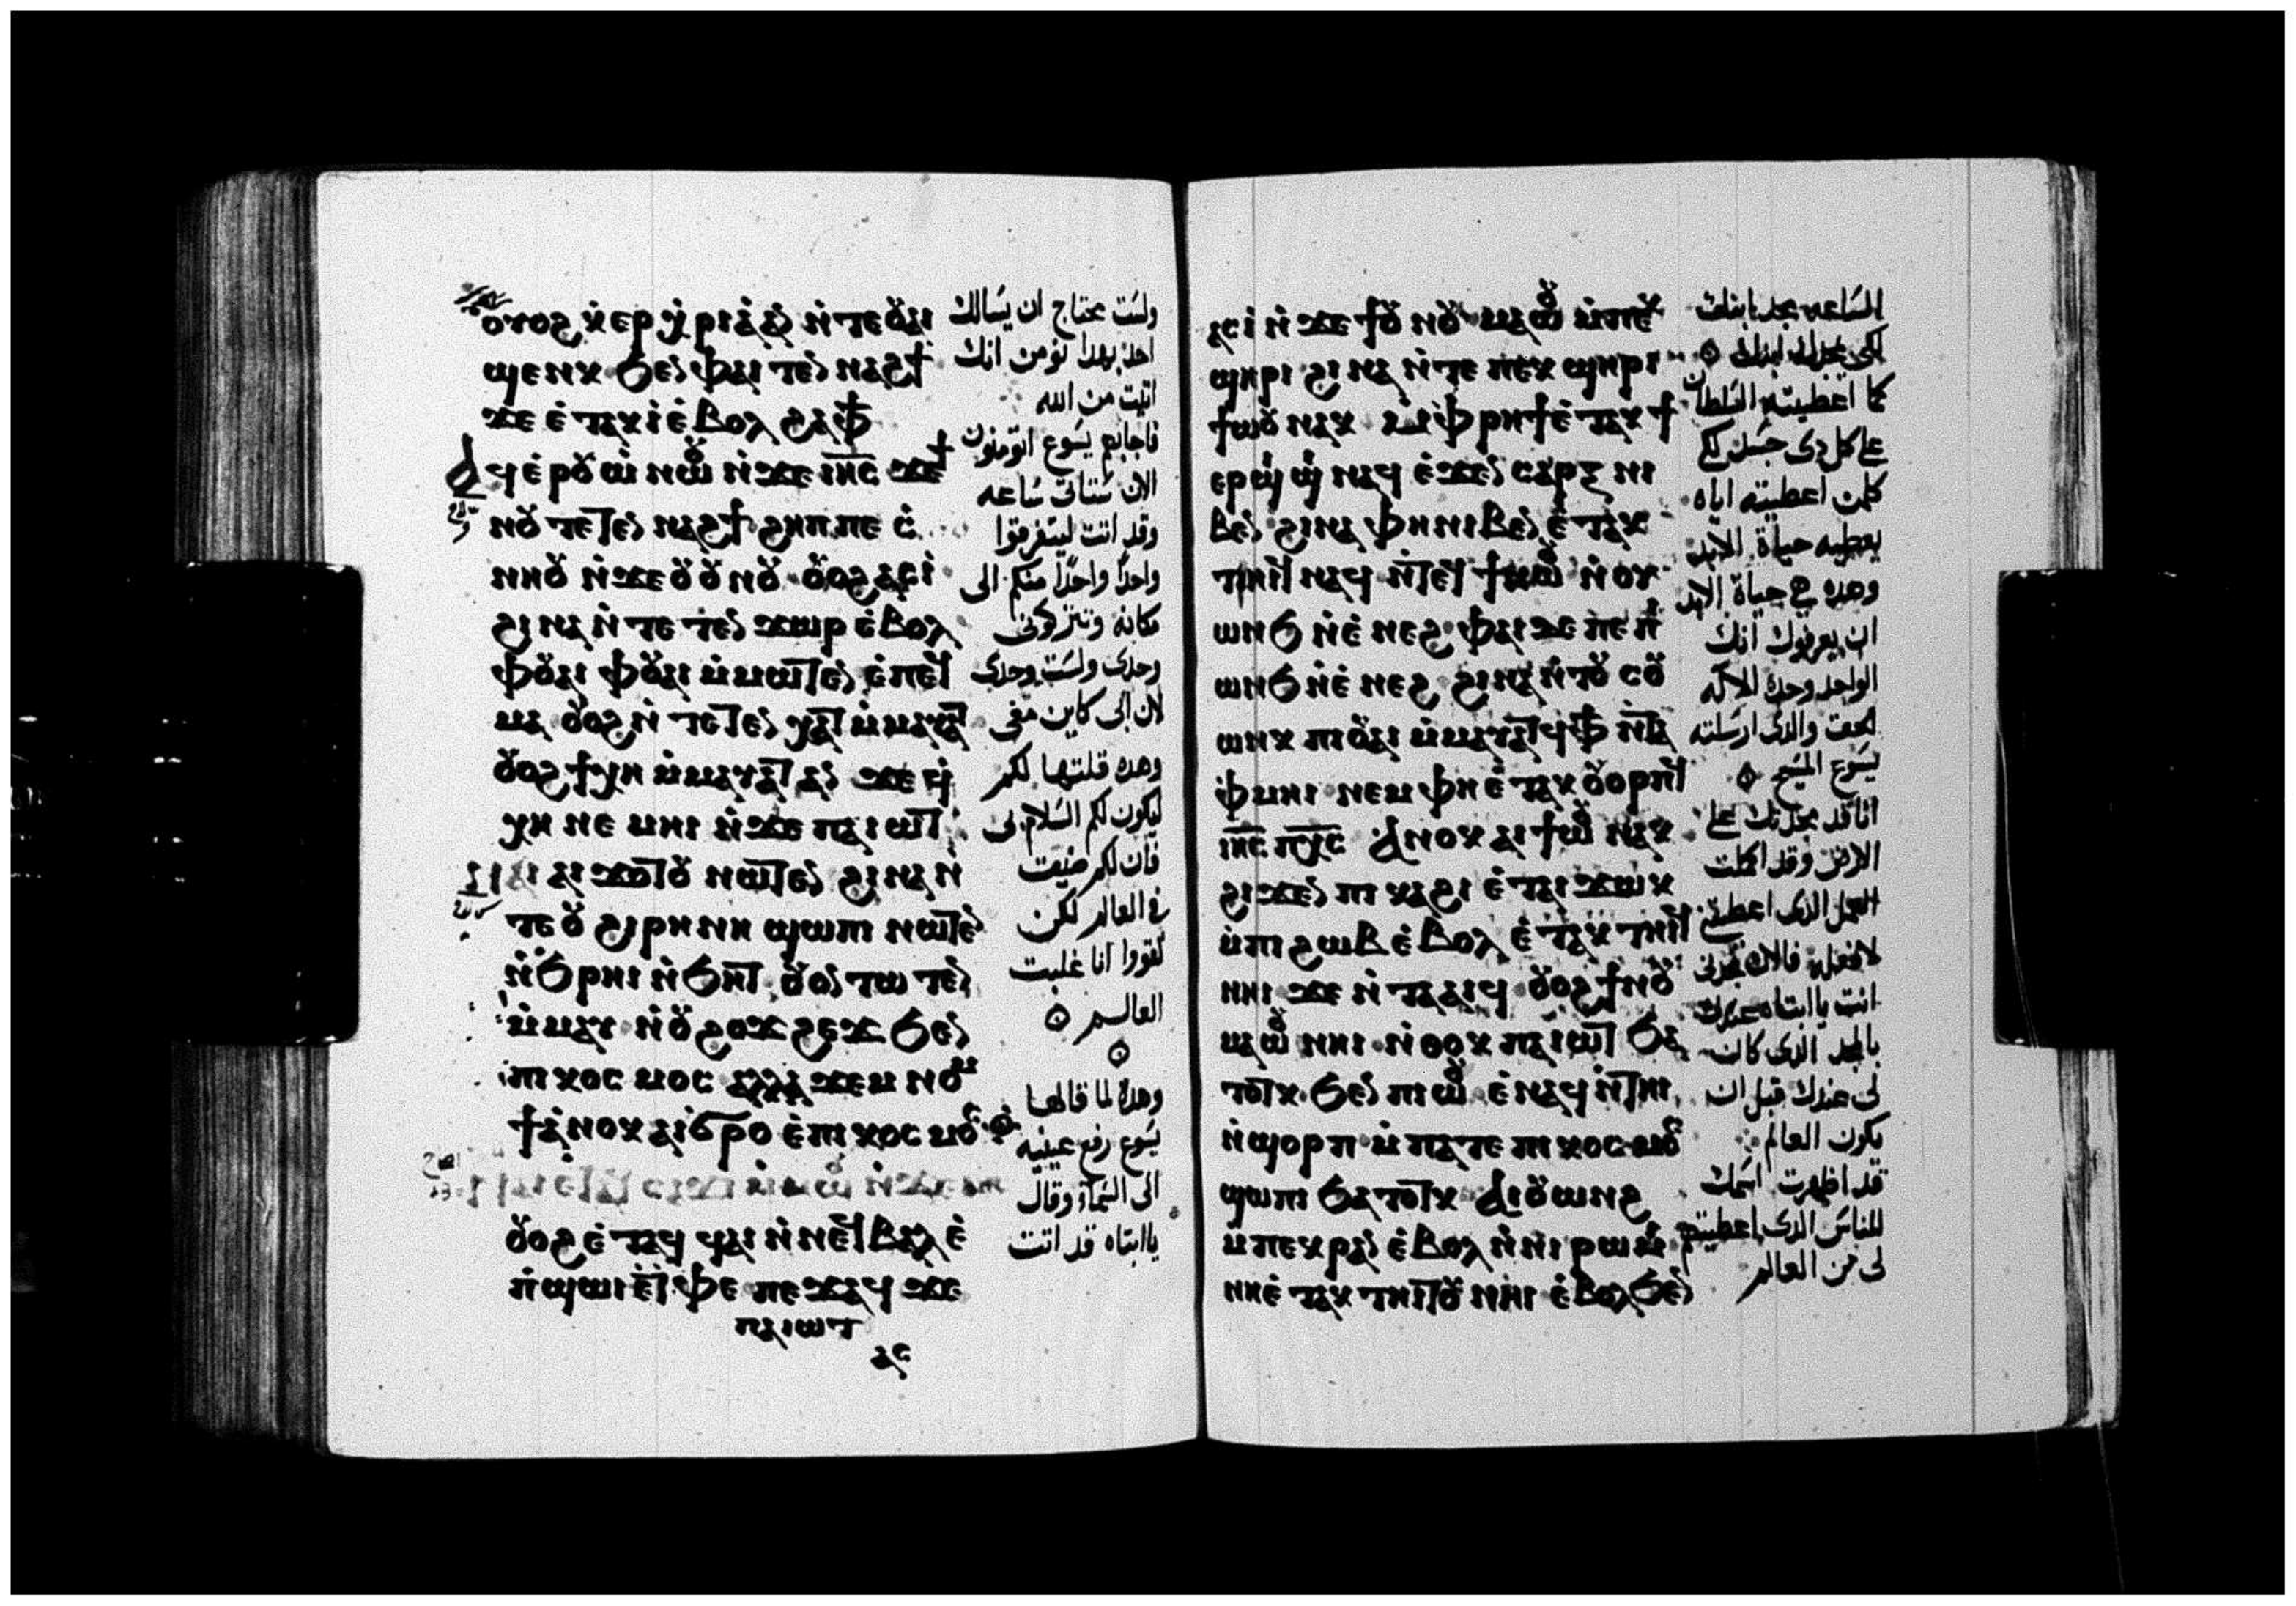 ⲟⲩⲟϩ ⲛ̀ⲕⲉⲣ ⲭ̀ⲣⲓⲁ ⲁⲛ ⲛ̀ⲧⲉ ⲟⲩⲁⲓ
ϣⲉⲛⲕ ϧⲉⲛ ⲫⲁⲓ ⲧⲉⲛ ⲛⲁϩϯ
ϫⲉ ⲉ̀ⲧⲁⲕⲓ̀ ⲉ̀ⲃⲟⲗ ϩⲁⲫϯ
ⲁϥⲉⲣⲟⲩⲱ̀ ⲛⲱⲟⲩ ⲛ̀ϫⲉ ⲓⲏⲥ ϫⲉ ϯ
ⲛⲟⲩ ⲧⲉⲧⲉⲛ ⲛⲁϩϯ ϩⲏⲡⲡⲉ ⲥ̀
ⲛⲏⲟⲩ ⲛ̀ϫⲉ ⲟⲩⲟⲩⲛⲟⲩ ⲟⲩⲟϩ ⲁⲥⲓ̀
ϩⲓⲛⲁ ⲛ̀ⲧⲉ ⲧⲉⲛ ϫⲱⲣ ⲉ̀ⲃⲟⲗ
ⲫⲟⲩⲁⲓ ⲫⲟⲩⲁⲓ ⲙ̀ⲙⲱⲧⲉⲛ ⲉ̀ⲡⲉϥ
ⲙⲁ ⲟⲩⲟϩ ⲛ̀ⲧⲉⲧⲉⲛ ⲭⲁⲧ ⲙ̀ⲙⲁⲩⲁⲧ
ⲟⲩⲟϩ ϯⲭⲏ ⲙ̀ⲙⲁⲩⲁⲧ ⲁⲛ ϫⲉ ϥ̀
ⲭⲏ ⲛⲉⲙⲏⲓ ⲛ̀ϫⲉ ⲡⲁⲓⲱⲧ
ⲛⲁⲓ ⲁⲓϫⲟⲧⲟⲩ ⲛⲱⲧⲉⲛ ϩⲓⲛⲁ ⲛ̀
ⲧⲉ ⲟⲩϩⲓⲣⲏⲛⲏ ϣⲱⲡⲓ ⲛⲱⲧⲉⲛ
ⲛ̀ϧⲣⲏⲓ ⲛ̀ϧⲏⲧ ⲟⲩⲟⲛ ⲧⲱ ⲧⲉⲛ
ⲙ̀ⲙⲁⲩ ⲛ̀ⲟⲩϩⲟϫϩⲉϫ ϧⲉⲛ
ⲡⲓⲕⲟⲥⲙⲟⲥ ⲁⲗⲗⲁ ϫⲉⲙ ⲛⲟⲙ
ϯ ⲁ̀ⲛⲟⲕ ⲁⲓϭⲣⲟ ⲉ̀ⲡⲓⲕⲟⲥⲙⲟⲥ
ⲟⲩⲟϩ ⲉ̀ⲧⲁϥ ϥⲁⲓ ⲛ̀ⲛⲉϥⲃⲁⲗ ⲉ̀
ⲡ̀ϣⲱⲓ ⲉ̀ⲧⲫⲉ ⲡⲉϫⲁϥ ϫⲉ
ⲡⲁⲓⲱⲧ
ⲁⲥ
ولست محتاج ان يسالك
احد بهدا نومن انك
اتيت من الله
فاجابهم يسوع اتومنون
الان ستاتى ساعه
وقد اتت ليتفرقوا
واحدًا واحدًا منكم الى
مكانه وتتركونى
وحدى ولست وحدى
لان ابى كاين معى
وهده قلتها لكم
ليكون لكم السلام بى
فان لكم ضيقت
فى العالم لكن
تقووا انا غلبت
العالم
وهده لما قالها
يسوع رفع عينيه
الى السمآ وقال
ياابتاه قد اتت
ⲁⲥⲓ̀ ⲛ̀ϫⲉ ϯⲟⲩⲛⲟⲩ ⲙⲁⲱⲟⲩ ⲙ̀ⲡⲉⲕ
ϣⲏⲣⲓ ϩⲓⲛⲁ ⲛ̀ⲧⲉ ⲡⲉⲕ ϣⲏⲣⲓ
ϯⲱⲟⲩ ⲛⲁⲕ ⲙ̀ⲫⲣⲏϯ ⲉ̀ⲧⲁⲕϯ
ⲉⲣϣⲓϣⲓ ⲛⲁϥ ⲉ̀ϫⲉⲛ ⲥⲁⲣⲝ ⲛⲓ
ⲃⲉⲛ ϩⲓⲛⲁ ⲫⲏ ⲛⲓⲃⲉⲛ ⲉ̀ⲧⲁⲕ
ⲧⲏⲓϥ ⲛⲁϥ ⲛ̀ⲧⲉϥ ϯⲛⲱⲟⲩ ⲛ̀ⲟⲩ
ⲱⲛϧ ⲛ̀ⲉ̀ⲛⲉϩ ⲫⲁⲓ ⲇⲉ ⲡⲉ ⲡⲓ
ⲱⲛϧ ⲛ̀ⲉ̀ⲛⲉϩ ϩⲓⲛⲁ ⲛ̀ⲧⲟⲩ ⲥⲟⲩ
ⲱⲛⲕ ⲡⲓⲟⲩⲁⲓ ⲙ̀ⲙⲁⲩⲁⲧϥ ⲫϯ ⲛ̀ⲧⲁ
ⲫⲙⲏⲓ ⲛⲉⲙ ⲫⲏ ⲉ̀ⲧⲁⲕ ⲟⲩⲟⲣⲡϥ
ⲓⲏⲥ ⲡⲭⲥ ⲁⲛⲟⲕ ⲁⲓϯⲱⲟⲩ ⲛⲁⲕ
ϩⲓϫⲉⲛ ⲡⲓⲕⲁϩⲓ ⲉ̀ⲧⲁⲓ ϫⲱⲕ
ⲙ̀ⲡⲓϩⲱⲃ ⲉ̀ⲃⲟⲗ ⲉ̀ⲧⲁⲕ ⲧⲏⲓϥ
ⲛⲏⲓ ϫⲉ ⲛ̀ⲧⲁⲁⲓϥ ⲟⲩⲟϩ ϯⲛⲟⲩ
ⲙⲁⲱⲟⲩ ⲛⲏⲓ ⲛ̀ⲑⲟⲕ ⲡⲁⲓⲱⲧ ϧⲁ
ⲧⲟⲧⲕ ϧⲉⲛ ⲡⲓⲱⲟⲩ ⲉ̀ⲛⲁϥ ⲛ̀ⲧⲏⲓ
ⲛ̀ϣⲟⲣⲡ ⲙ̀ⲡⲁⲧⲉ ⲡⲓⲕⲟⲥⲙⲟⲥ
ϣⲱⲡⲓ ϧⲁⲧⲟⲧⲕ ⲁⲓⲟⲩⲱⲛϩ
ⲙ̀ⲡⲉⲕⲣⲁⲛ ⲉ̀ⲃⲟⲗ ⲛ̀ⲛⲓⲣⲱⲙⲓ
ⲛⲏ ⲉ̀ⲧⲁⲕ ⲧⲏⲓⲧⲟⲩ ⲛⲏⲓ ⲉ̀ⲃⲟⲗ ϧⲉⲛ
الساعه مجد ابنك
لكى يمجدك ابنك
كما اعطيته السلطان
على كل دى جسد لكى
كلمن اعطيته اياه
يعطيه حياة الابد
وهده هى حياة الابد
ان يعرفوك انك
الواحد وحدك الاله
الحق والدى ارسلته
يسوع المسيح
انا قد مجدتك على
الارض وقد اكملت
العمل الدى اعطيتنى
لافعله فالان مجدنى
انت ياابتاه عندك
بالمجد الدى كان
لى عندك قبل ان
يكون العالم
قد اظهرت اسمك
للناس الدى اعطيتهم
لى من العالم